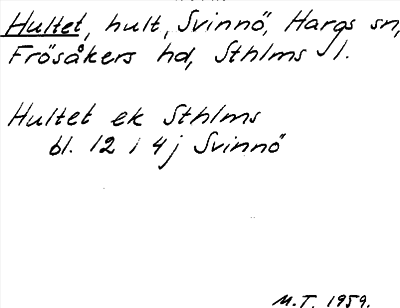 Hultet, hult, Svinnö, Hargs sn,
Frösåkers hd, Sthlms l.
Hultet ek Sthlms
bl. 12 i 4 j Svinnö
M.T. 1959.